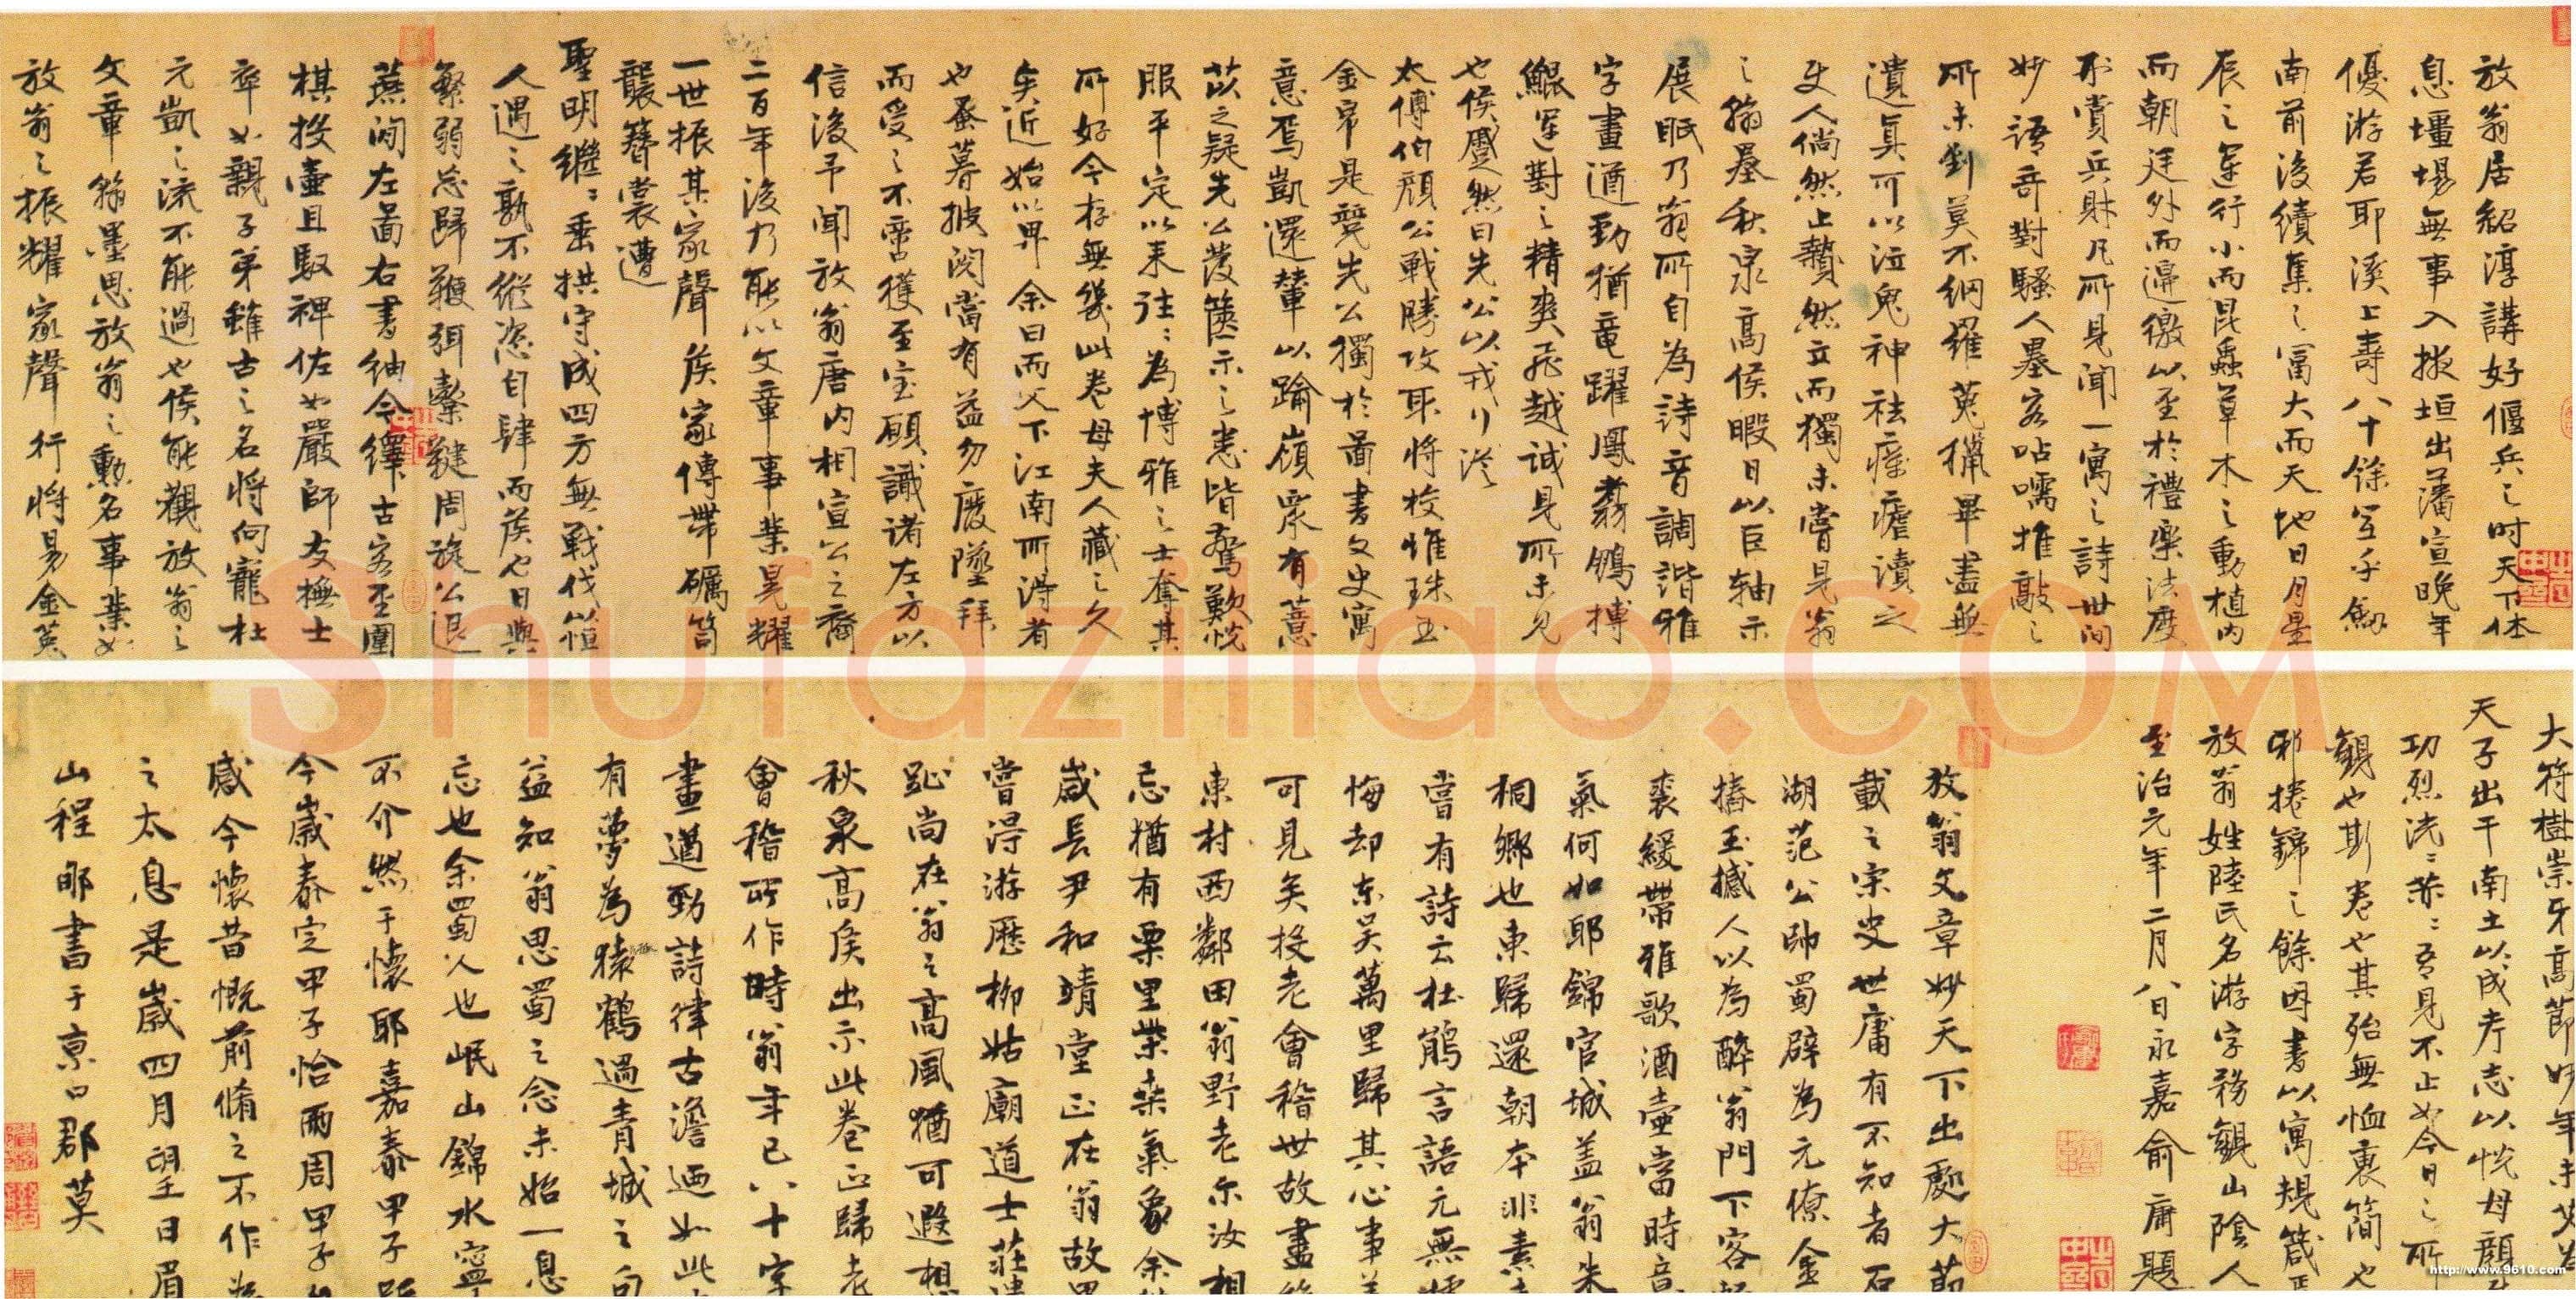 放翁居紹淳講好偃兵之時天下休
息壃場無事入掖垣出藩宣晚年
優游君耶溪上壽八十餘至千篇
南前後續集之富大而天地日月星
辰之運行小而昆蟲草木之動植内
而朝廷外而邊徼以至於禮樂法度
刑賞兵財凡所見聞一寓之詩世間
妙語奇對騷人墨客呫嚅推敲之
所未到莫不網羅蒐獵畢盡無
遺真可以泣鬼神袪瘴瘧讀之
使人倘然止贄然立而獨未嘗見翁
之翰墨秋泉高侯暇日以巨轴示
展眂乃翁所自為詩音調諧雅
字畫遒勁猶竜躍鳳翥鵬搏
鯤運對之精爽飛越誠見所未見
也侯蹙然曰先公以戎行從
太傅伯顔公戰勝攻取將校惟珠玉
金帛是競先公獨於圖書文史寓
意焉凱還輦以踰嶺眾有薏
苡之疑先公發篋示之悉皆驚歎悦
服平定以来往〻為博雅之士奪其
所好今存無幾此卷母夫人藏之久
矣近始以畀余曰而父下江南所得者
也蚤暮披閱當有益勿廢墜拜
而受之不啻獲至宝願識诸左方以
信後予聞放翁唐内相宣公之裔
二百年後乃能以文章事業晃耀
一世振其家聲矦家傳帶礪笥
襲簪裳遭
聖明繼〻垂拱守成四方無戰伐以恒
人遇之孰不縱恣自肆而矦也日與
繁弱忘歸鞭弭櫜鞬周旋公退
燕閒左圖右書紬今繹古客至圍
棋投壺且馭裨佐如嚴師友撫士
卒如親子弟雖古之名将何寵杜
元凱之流不能過也侯能觀放翁之
文章翰墨思放翁之勳名事業如
放翁之振耀家聲行将易金英
大符樹崇牙髙節妙年未艾為
天子出干南土以成考志以悦母顔
功烈洸〻赫〻吾見不止如今日之所
觀也斯卷也其殆無恤裏簡也
邪捲錦之餘因書以寓規箴
放翁姓陸氏名游字務觀山陰人
至治元年二月八日永嘉俞庸題
放翁文章妙天下出處大節
載之宋史世庸有不知者石
湖范公帥蜀辟為元僚金
摏玉撼人以為醉翁門下客
裘緩帶雅歌酒壺當時音
氣何如耶錦官城盖翁朱
桐鄉也東歸還朝本非素
嘗有詩云杜鵑言語元無
悔却东吴萬里歸其心事
可見矣投老會稽世故盡
東村西鄰田翁野老尔汝相
忘猶有栗里柴桑氣象余
歲長尹和靖堂正在翁故里
嘗得游歷柳姑廟道士荘
趾尚在翁之高風猶可遐想
秋泉高矦出示此卷正歸老
會稽所作時翁年已八十字
畫遒勁詩律古澹迺如此
有夢為猿鶴過青城之句
益知翁思蜀之念未始一息
忘也余蜀人也岷山錦水寧
不介然于懐耶嘉泰甲子距
今歲泰定甲子恰兩周甲子
感今懐昔慨前脩之不作為
之太息是歲四月望日眉
山程郇書于京口郡莫
http://www.9610.com
Shufaziliao.COM